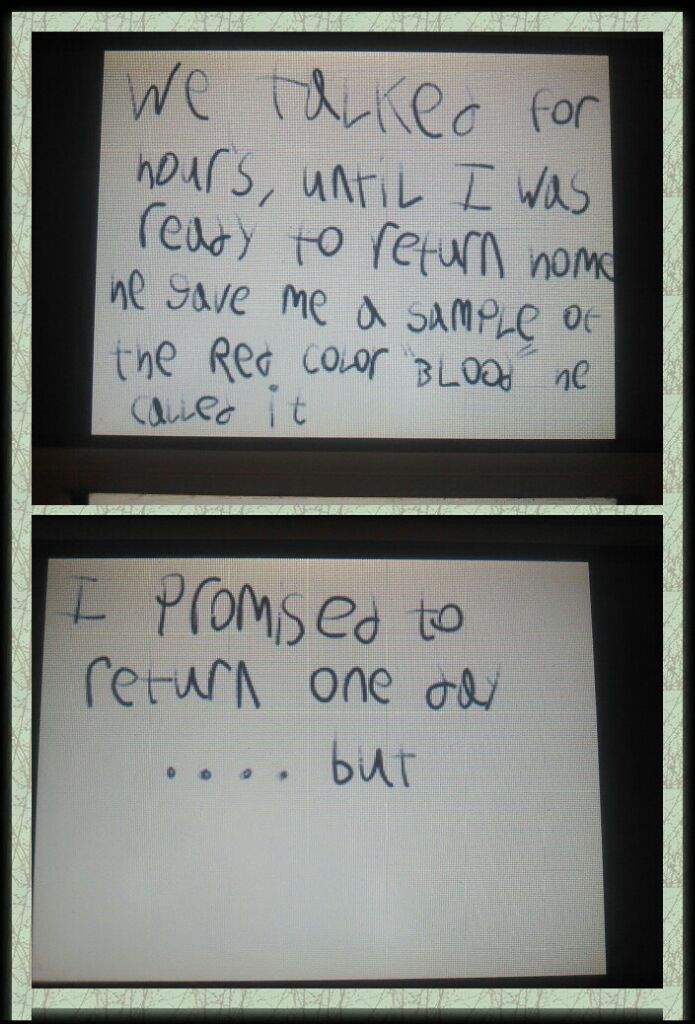 We talked for
hours, until I was
ready to return home
he gave me a sample of
the Red color "BLOOd" he
called it
I promised to
return one day
.... but